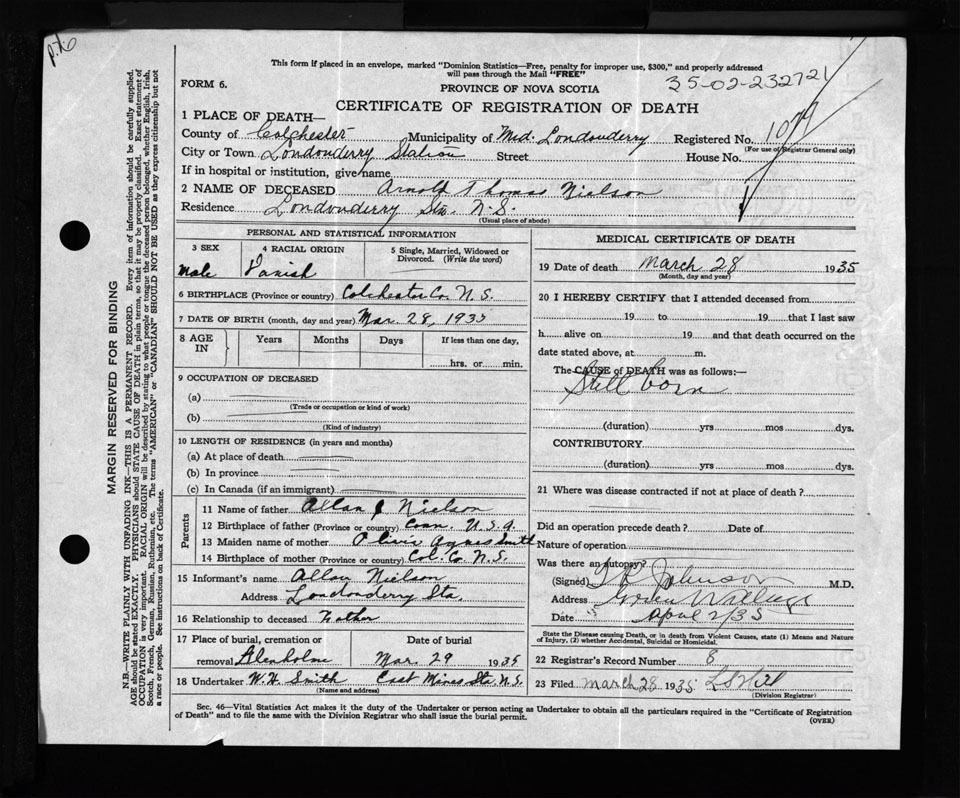 p.76
This form if placed in an envelope, marked "Dominion Statistics—Free, penalty for improper use, $300," and properly addressed
will pass through the Mail "FREE"
35-02-232721
FORM 6.
PROVINCE OF NOVA SCOTIA
CERTIFICATE OF REGISTRATION OF DEATH
1 PLACE OF DEATH—
County of Colchester Municipality of Mud. Londonderry Registered No. 1077
(For use of Registrar General only)
City or Town Londonderry Station Street House No.
If in hospital or institution, give name
2 NAME OF DECEASED Arnold Thomas Nielson
Residence Londonderry Sta. N.S.
(Usual place of abode)
PERSONAL AND STATISTICAL INFORMATION
3 SEX 4 RACIAL ORIGIN 5 Single, Married, Widowed or
Divorced. (Write the word)
Male Danish
6 BIRTHPLACE (Province or country) Colchester Co. N.S.
7 DATE OF BIRTH (month, day and year) Mar. 28, 1935
8 AGE IN Years Months Days If less than one day,
hrs. or min.
9 OCCUPATION OF DECEASED
(a)
(Trade or occupation or kind of work)
(b)
(Kind of industry)
10 LENGTH OF RESIDENCE (in years and months)
(a) At place of death
(b) In province
(c) In Canada (if an immigrant)
Parents
11 Name of father Allan J Nielson
12 Birthplace of father (Province or country) Conn. U.S.A.
13 Maiden name of mother Olivia Agnes Smith
14 Birthplace of mother (Province or country) Col. Co. N.S.
15 Informant's name Allan Nielson
Address Londonderry Sta.
16 Relationship to deceased Father
17 Place of burial, cremation or Date of burial
removal Glenholme Mar. 29 1935
18 Undertaker W. H. Smith East Mines Sta. N.S.
(Name and address)
MEDICAL CERTIFICATE OF DEATH
19 Date of death March 28 1935
(Month, day and year)
20 I HEREBY CERTIFY that I attended deceased from
19 to 19 that I last saw
h alive on 19 and that death occurred on the
date stated above, at m.
The CAUSE of DEATH was as follows:—
Still born
(duration) yrs mos dys.
CONTRIBUTORY
(duration) yrs mos dys.
21 Where was disease contracted if not at place of death?
Did an operation precede death? Date of
Nature of operation
Was there an autopsy?
(Signed) Johnson M.D.
Address Village
Date April 2/35
State the Disease causing Death, or in death from Violent Causes, state (1) Means and Nature
of Injury, (2) whether Accidental, Suicidal or Homicidal.
22 Registrar's Record Number 8
23 Filed March 28 1935 L S Hill
(Division Registrar)
Sec. 46—Vital Statistics Act makes it the duty of the Undertaker or person acting as Undertaker to obtain all the particulars required in the "Certificate of Registration
of Death" and to file the same with the Division Registrar who shall issue the burial permit.
(OVER)
MARGIN RESERVED FOR BINDING
N.B.—WRITE PLAINLY WITH UNFADING INK—THIS IS A PERMANENT RECORD. Every item of information should be carefully supplied.
AGE should be stated EXACTLY. PHYSICIANS should STATE CAUSE OF DEATH in plain terms, so that it may be properly classified. Exact statement of
OCCUPATION is very important. RACIAL ORIGIN will be described by stating to what people or tongue the deceased person belonged, whether English, Irish,
Scotch, French, German, Russian, Ruthenian, etc. The terms "AMERICAN" or "CANADIAN" SHOULD NOT BE USED as they express citizenship but not
a race or people. See instructions on back of Certificate.